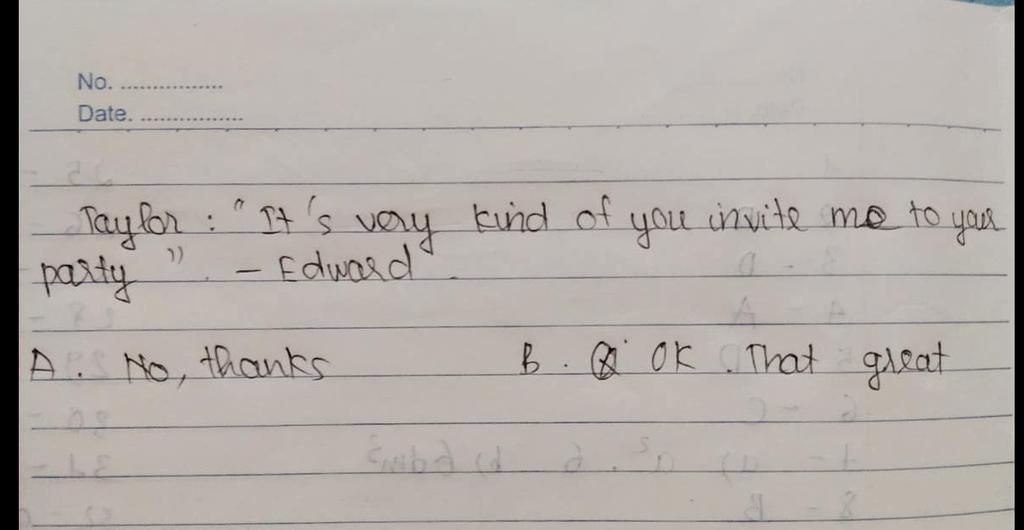 No. ................
Date. ................
Taylor : " It's very kind of you invite me to your
party " - Edward .
A. No, thanks B. OK. That great